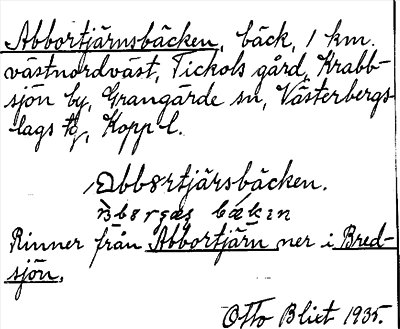 Abbortjärnsbäcken, bäck, 1 km.
västnordväst, Tickols gård, Krabb-
sjön by, Grangärde sn, Västerbergs-
lags tg, Kopp l.
Abbortjärsbäcken.
Rinner från Abbortjärn ner i Bred-
sjön.
Otto Blixt 1935.